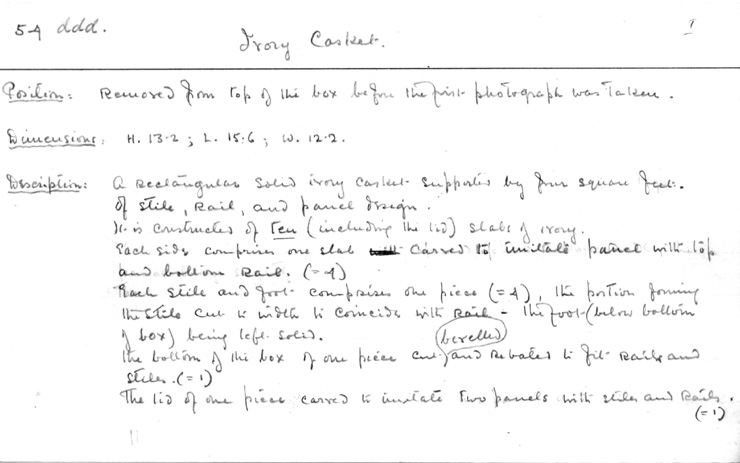 54 ddd.
Ivory Casket.
I
Position: Removed from top of the box before the first photograph was taken.
Dimensions: H. 13.2 ; L. 15.6 ; W. 12.2.
Description: A rectangular solid ivory casket supported by four square feet.
Of stile, rail, and panel design.
It is constructed of ten (including the lid) slabs of ivory.
Each side comprises one slab carved to imitate panel with top
and bottom rail. (= 4)
Each stile and foot comprises one piece (= 4), the portion forming
the stile cut to width to coincide with rail - the foot (below bottom
of box) being left solid.
(bevelled)
The bottom of the box of one piece cut, and rebated to fit rails and
stiles. (= 1)
The lid of one piece carved to imitate two panels with stiles and rails.
(= 1)